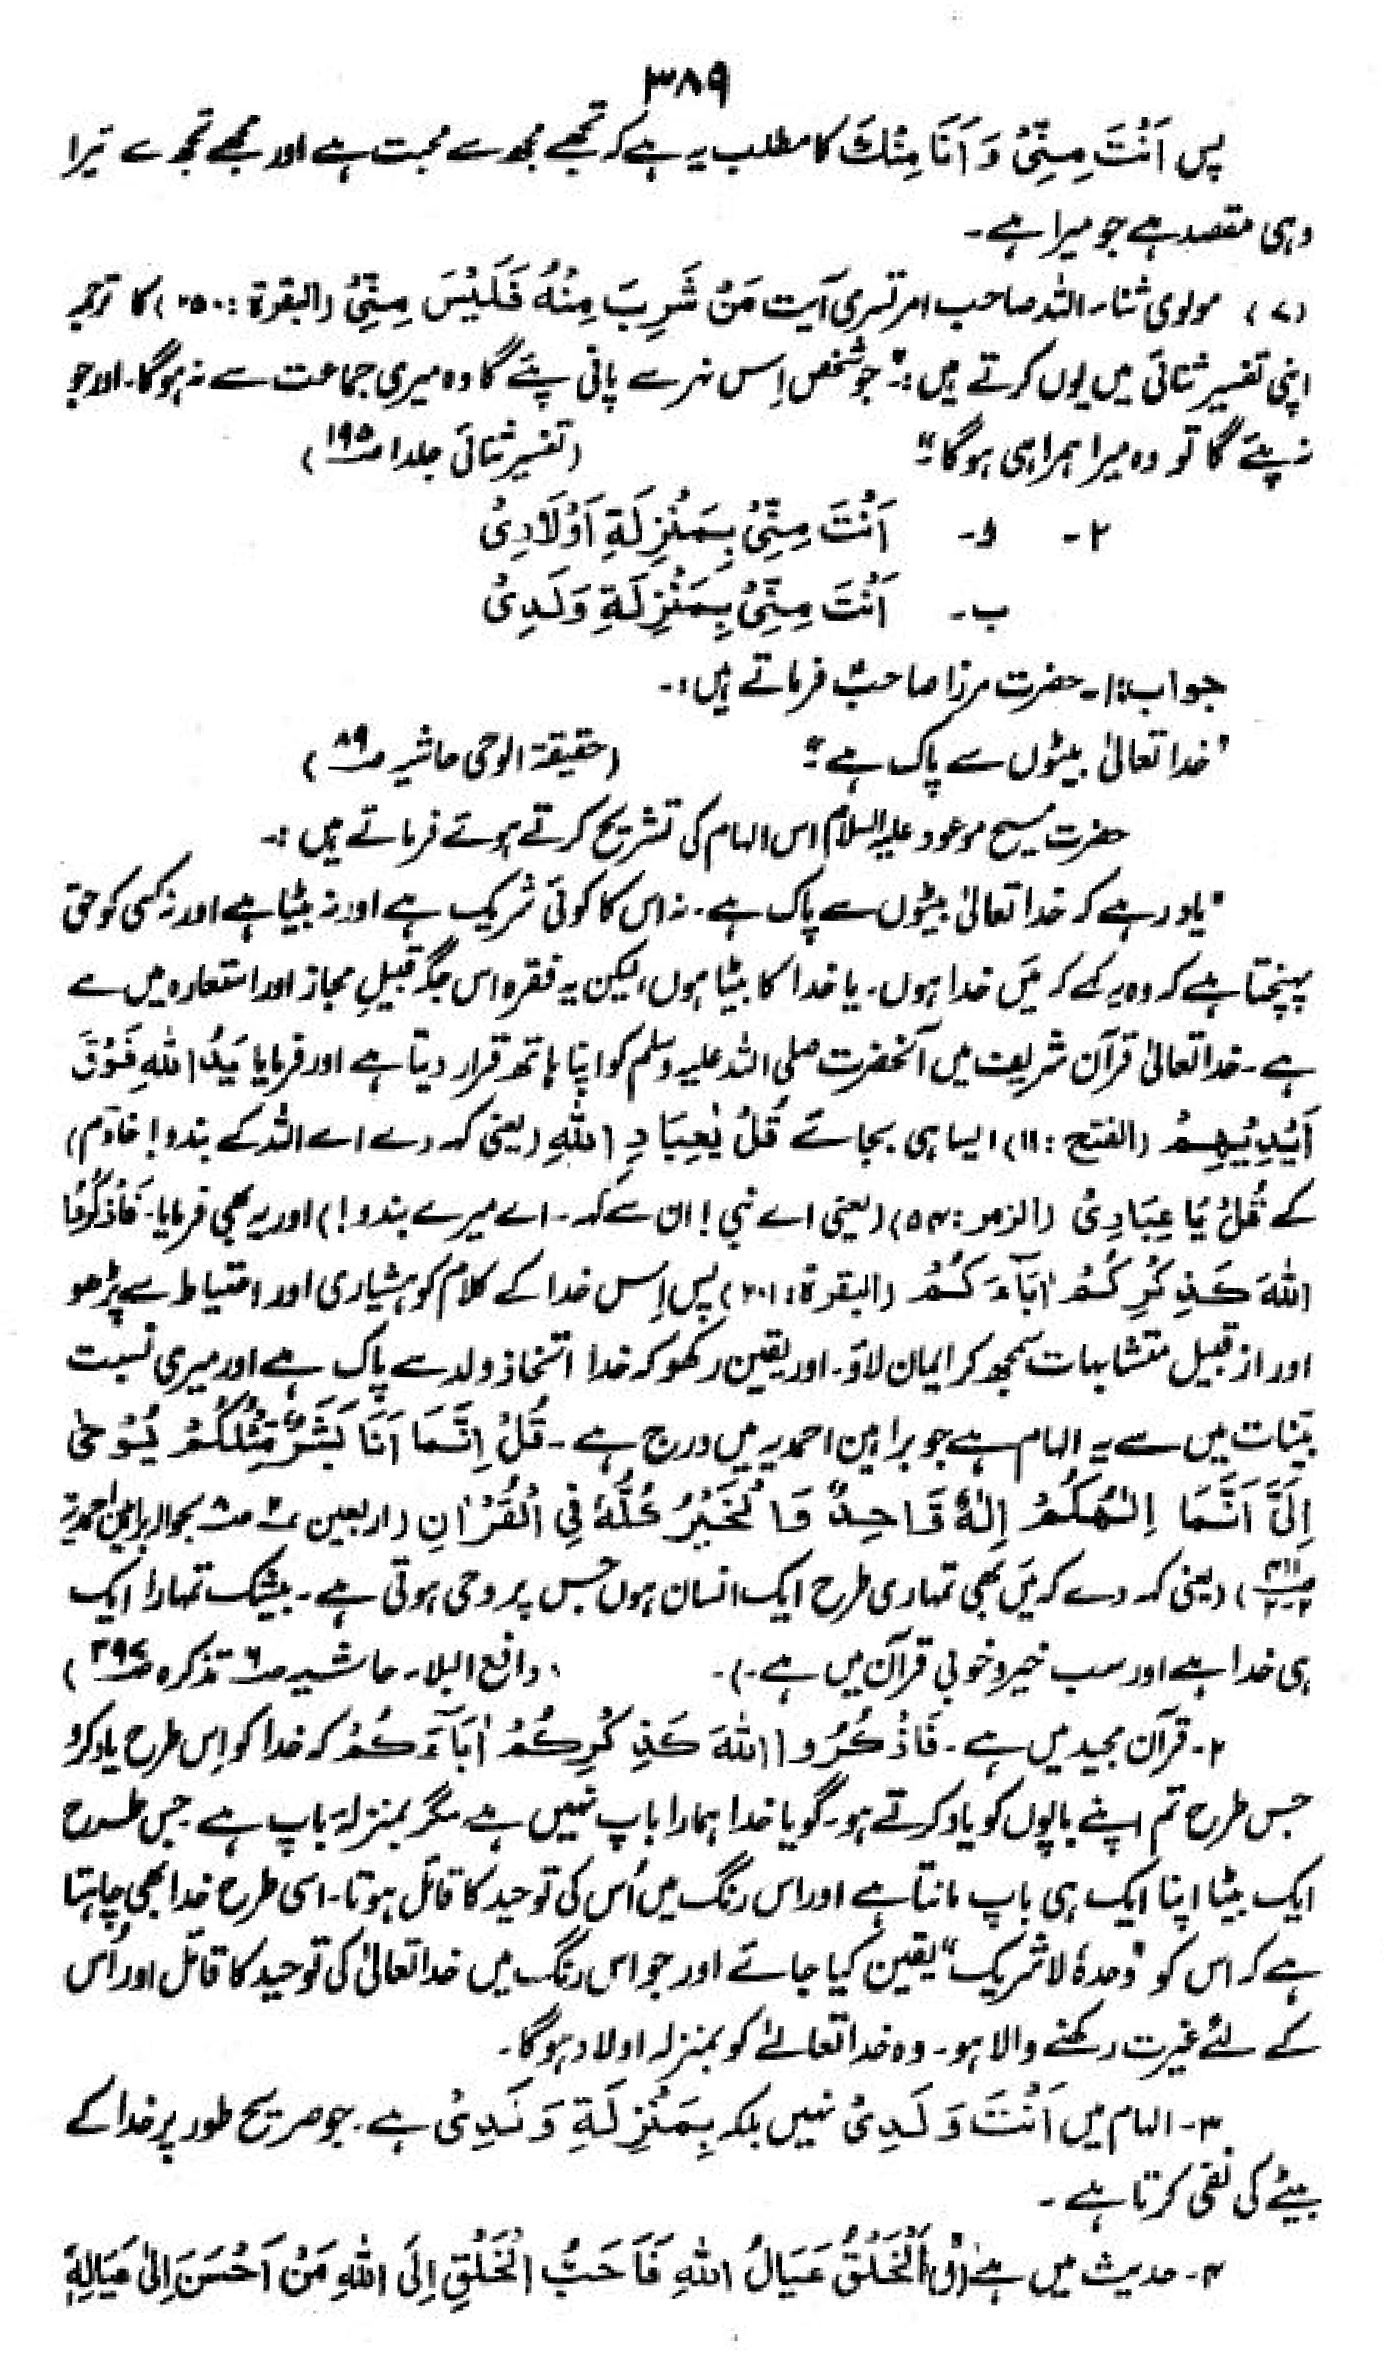 ۳۸۹
پس اَنْتَ مِنِّیْ وَ اَنَا مِنْكَ کا مطلب یہ ہے کہ تجھے مجھ سے محبت ہے اور مجھے تجھ سے تیرا
وہی مقصد ہے جو میرا ہے۔
(۷) مولوی ثناء اللہ صاحب امرتسری آیت مَنْ شَرِبَ مِنْهُ فَلَيْسَ مِنِّیْ (البقرة: ۲۵۰) کا ترجمہ
اپنی تفسیر ثنائی میں یوں کرتے ہیں:۔ "جو شخص اِس نہر سے پانی پئے گا وہ میری جماعت سے نہ ہوگا۔ اور جو
نہ پئے گا تو وہ میرا ہمراہی ہوگا۔" (تفسیر ثنائی جلد ۱ صـ۱۹۵)
۲۔ و۔ اَنْتَ مِنِّیْ بِمَنْزِلَةِ اَوْلَادِیْ
ب۔ اَنْتَ مِنِّیْ بِمَنْزِلَةِ وَلَدِیْ
جواب:۱۔ حضرت مرزا صاحبؑ فرماتے ہیں:۔
"خدا تعالیٰ بیٹوں سے پاک ہے۔" (حقیقة الوحی حاشیہ صـ۸۹)
حضرت مسیح موعود علیہ السلام اس الہام کی تشریح کرتے ہوئے فرماتے ہیں:۔
"یاد رہے کہ خدا تعالیٰ بیٹوں سے پاک ہے۔ نہ اس کا کوئی شریک ہے اور نہ بیٹا ہے اور نہ کسی کو حق
پہنچتا ہے کہ وہ یہ کہے کہ مَیں خدا ہوں۔ یا خدا کا بیٹا ہوں، لیکن یہ فقرہ اس جگہ قبیلِ مجاز اور استعارہ میں سے
ہے۔ خدا تعالیٰ قرآن شریف میں آنحضرت صلی اللہ علیہ وسلم کو اپنا ہاتھ قرار دیتا ہے اور فرمایا یَدُ اللّٰهِ فَوْقَ
اَیْدِیْهِمْ (الفتح: ۱۱) ایسا ہی بجائے قُلْ یٰعِبَادِ اللّٰهِ (یعنی کہہ دے اے اللہ کے بندو! خادم)
کے قُلْ یَا عِبَادِیْ (الزمر: ۵۴) (یعنی اے نبی! ان سے کہہ۔ اے میرے بندو!) اور یہ بھی فرمایا۔ فَاذْکُرُوا
اللّٰهَ کَذِکْرِکُمْ اٰبَآءَکُمْ (البقرة: ۲۰۱) پس اِس خدا کے کلام کو ہشیاری اور احتیاط سے پڑھو
اور از قبیل متشابہات سمجھ کر ایمان لاؤ۔ اور یقین رکھو کہ خدا اتخاذ ولد سے پاک ہے اور میری نسبت
بیّنات میں سے یہ الہام ہے جو براہین احمدیہ میں درج ہے۔ قُلْ اِنَّمَا اَنَا بَشَرٌ مِّثْلُکُمْ یُوْحٰی
اِلَیَّ اَنَّمَا اِلٰهُکُمْ اِلٰهٌ وَّاحِدٌ وَالْخَیْرُ کُلُّهٗ فِی الْقُرْاٰنِ (اربعین بحوالہ براہین احمدیہ
صـ۴۱۱) (یعنی کہہ دے کہ مَیں بھی تمہاری طرح ایک انسان ہوں جس پر وحی ہوتی ہے۔ بیشک تمہارا ایک
ہی خدا ہے اور سب خیر و خوبی قرآن میں ہے۔)۔ (دافع البلاء حاشیہ صـ۶ تذکرہ صـ۳۹۷)
۲۔ قرآن مجید میں ہے۔ فَاذْکُرُوا اللّٰهَ کَذِکْرِکُمْ اٰبَآءَکُمْ کہ خدا کو اِس طرح یاد کرو
جس طرح تم اپنے باپوں کو یاد کرتے ہو۔ گویا خدا ہمارا باپ نہیں ہے مگر بمنزلہ باپ ہے۔ جس طرح
ایک بیٹا اپنا ایک ہی باپ مانتا ہے اور اس رنگ میں اُس کی توحید کا قائل ہوتا۔ اسی طرح خدا بھی چاہتا
ہے کہ اس کو "وحدہٗ لا شریک" یقین کیا جائے اور جو اس رنگ میں خدا تعالیٰ کی توحید کا قائل اور اُس
کے لئے غیرت رکھنے والا ہو۔ وہ خدا تعالےٰ کو بمنزلہ اولاد ہوگا۔
۳۔ الہام میں اَنْتَ وَلَدِیْ نہیں بلکہ بِمَنْزِلَةِ وَلَدِیْ ہے۔ جو صریح طور پر خدا کے
بیٹے کی نفی کرتا ہے۔
۴۔ حدیث میں ہے (ا) اَلْخَلْقُ عَیَالُ اللّٰهِ فَاَحَبُّ الْخَلْقِ اِلَی اللّٰهِ مَنْ اَحْسَنَ اِلٰی عَیَالِهٖ